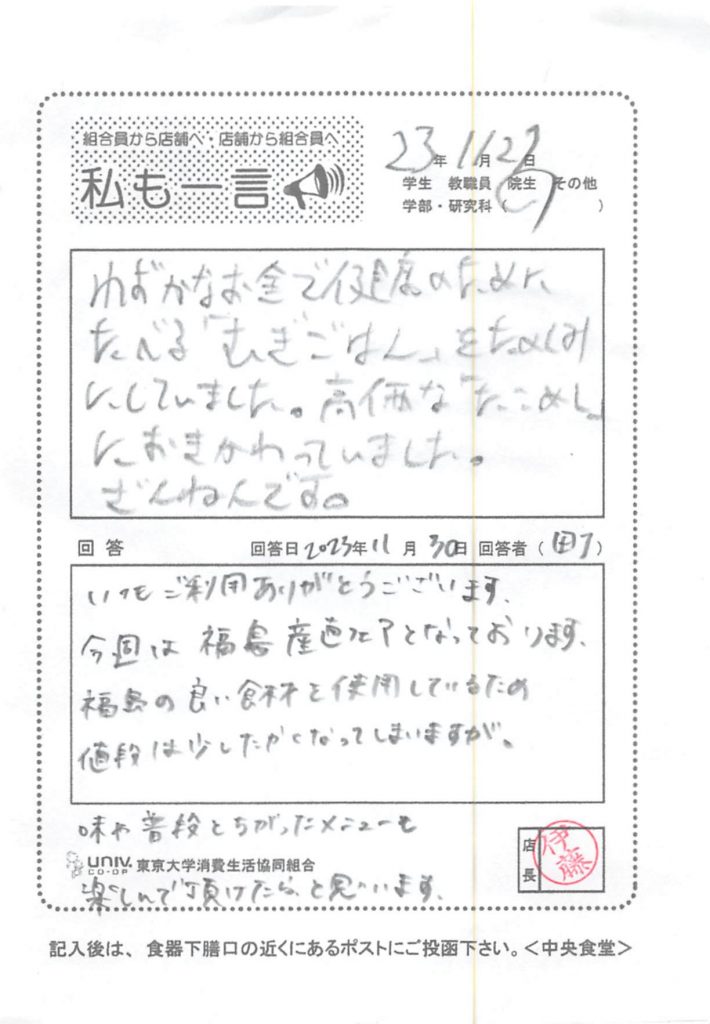 組合員から店舗へ・店舗から組合員へ
私も一言
23年11月27日
学生 教職員 院生 その他
学部・研究科( )
わずかなお金で健康のために
たべる「むぎごはん」をたのしみ
にしていました。高価な「たこめし」
におきかわっていました。
ざんねんです。
回答 回答日2023年11月30日 回答者( )
いつもご利用ありがとうございます。
今週は福島産直フェアとなっております。
福島の良い食材を使用しているため
値段は少したかくなってしまいますが。
味や普段とちがったメニューも
UNIV. CO-OP 東京大学消費生活協同組合
楽しんで頂けたら、と思います。
店長
伊藤
記入後は、食器下膳口の近くにあるポストにご投函下さい。<中央食堂>